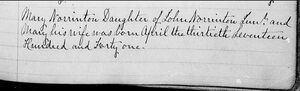 Mary Norrinton Daughter of John Norrinton Junr. and
Mary his wife was born April the thirtieth Seventeen
Hundred and Forty one.